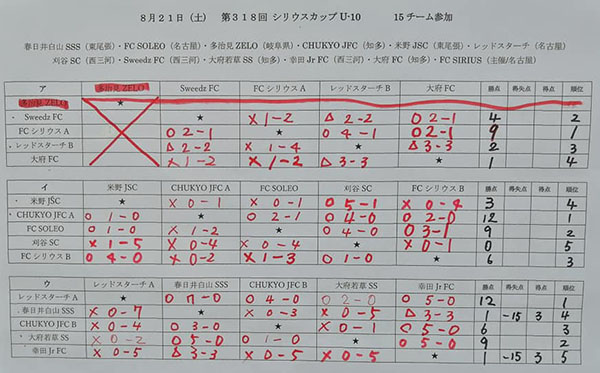 8月21日（土） 第318回 シリウスカップ U-10 15チーム参加
春日井白山 SSS（東尾張）・FC SOLEO（名古屋）・多治見 ZELO（岐阜県）・CHUKYO JFC（知多）・米野 JSC（東尾張）・レッドスターチ（名古屋）
刈谷 SC（西三河）・Sweedz FC（西三河）・大府若草 SS（知多）・幸田 Jr FC（西三河）・大府 FC（知多）・FC SIRIUS（主催/名古屋）
ア 多治見 ZELO Sweedz FC FC シリウス A レッドスターチ B 大府 FC 勝点 得失点 得点 順位
多治見 ZELO ★
Sweedz FC ★ × 1-2 △ 2-2 O 2-1 4 2
FC シリウス A O 2-1 ★ O 4-1 O 2-1 9 1
レッドスターチ B △ 2-2 × 1-4 ★ △ 3-3 2 3
大府 FC × 1-2 × 1-2 △ 3-3 ★ 1 4
イ 米野 JSC CHUKYO JFC A FC SOLEO 刈谷 SC FC シリウス B 勝点 得失点 得点 順位
米野 JSC ★ × 0-1 × 0-1 O 5-1 × 0-4 3 4
CHUKYO JFC A O 1-0 ★ O 2-1 O 4-0 O 2-0 12 1
FC SOLEO O 1-0 × 1-2 ★ O 4-0 O 3-1 9 2
刈谷 SC × 1-5 × 0-4 × 0-4 ★ × 0-1 0 5
FC シリウス B O 4-0 × 0-2 × 1-3 O 1-0 ★ 6 3
ウ レッドスターチ A 春日井白山 SSS CHUKYO JFC B 大府若草 SS 幸田 Jr FC 勝点 得失点 得点 順位
レッドスターチ A ★ O 7-0 O 4-0 O 2-0 O 5-0 12 1
春日井白山 SSS × 0-7 ★ × 0-3 × 0-5 △ 3-3 1 -15 3 4
CHUKYO JFC B × 0-4 O 3-0 ★ × 0-1 O 5-0 6 3
大府若草 SS × 0-2 O 5-0 O 1-0 ★ O 5-0 9 2
幸田 Jr FC × 0-5 △ 3-3 × 0-5 × 0-5 ★ 1 -15 3 5